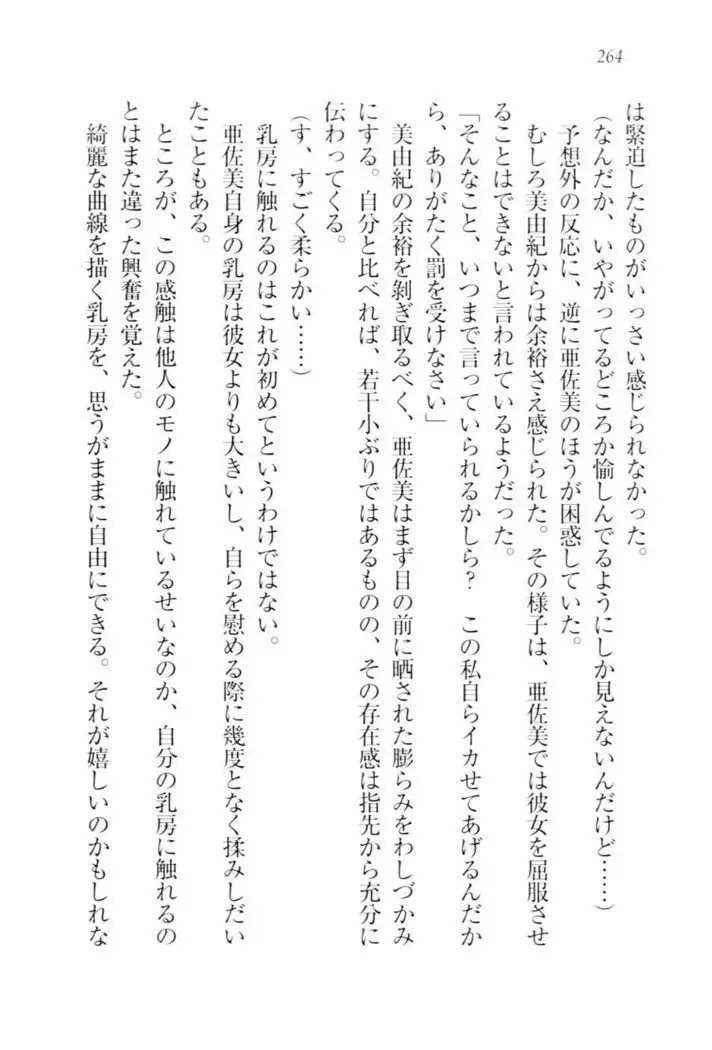 264
は緊迫したものがいっさい感じられなかった。
(なんだか、いやがってるどころか愉しんでるようにしか見えないんだけど……)
予想外の反応に、逆に亜佐美のほうが困惑していた。
むしろ美由紀からは余裕さえ感じられた。その様子は、亜佐美では彼女を屈服させ
ることはできないと言われているようだった。
「そんなこと、いつまで言っていられるかしら? この私自らイカせてあげるんだか
ら、ありがたく罰を受けなさい」
美由紀の余裕を剝ぎ取るべく、亜佐美はまず目の前に晒された膨らみをわしづかみ
にする。自分と比べれば、若干小ぶりではあるものの、その存在感は指先から充分に
伝わってくる。
(す、すごく柔らかい……)
乳房に触れるのはこれが初めてというわけではない。
亜佐美自身の乳房は彼女よりも大きいし、自らを慰める際に幾度となく揉みしだい
たこともある。
ところが、この感触は他人のモノに触れているせいなのか、自分の乳房に触れるの
とはまた違った興奮を覚えた。
綺麗な曲線を描く乳房を、思うがままに自由にできる。それが嬉しいのかもしれな